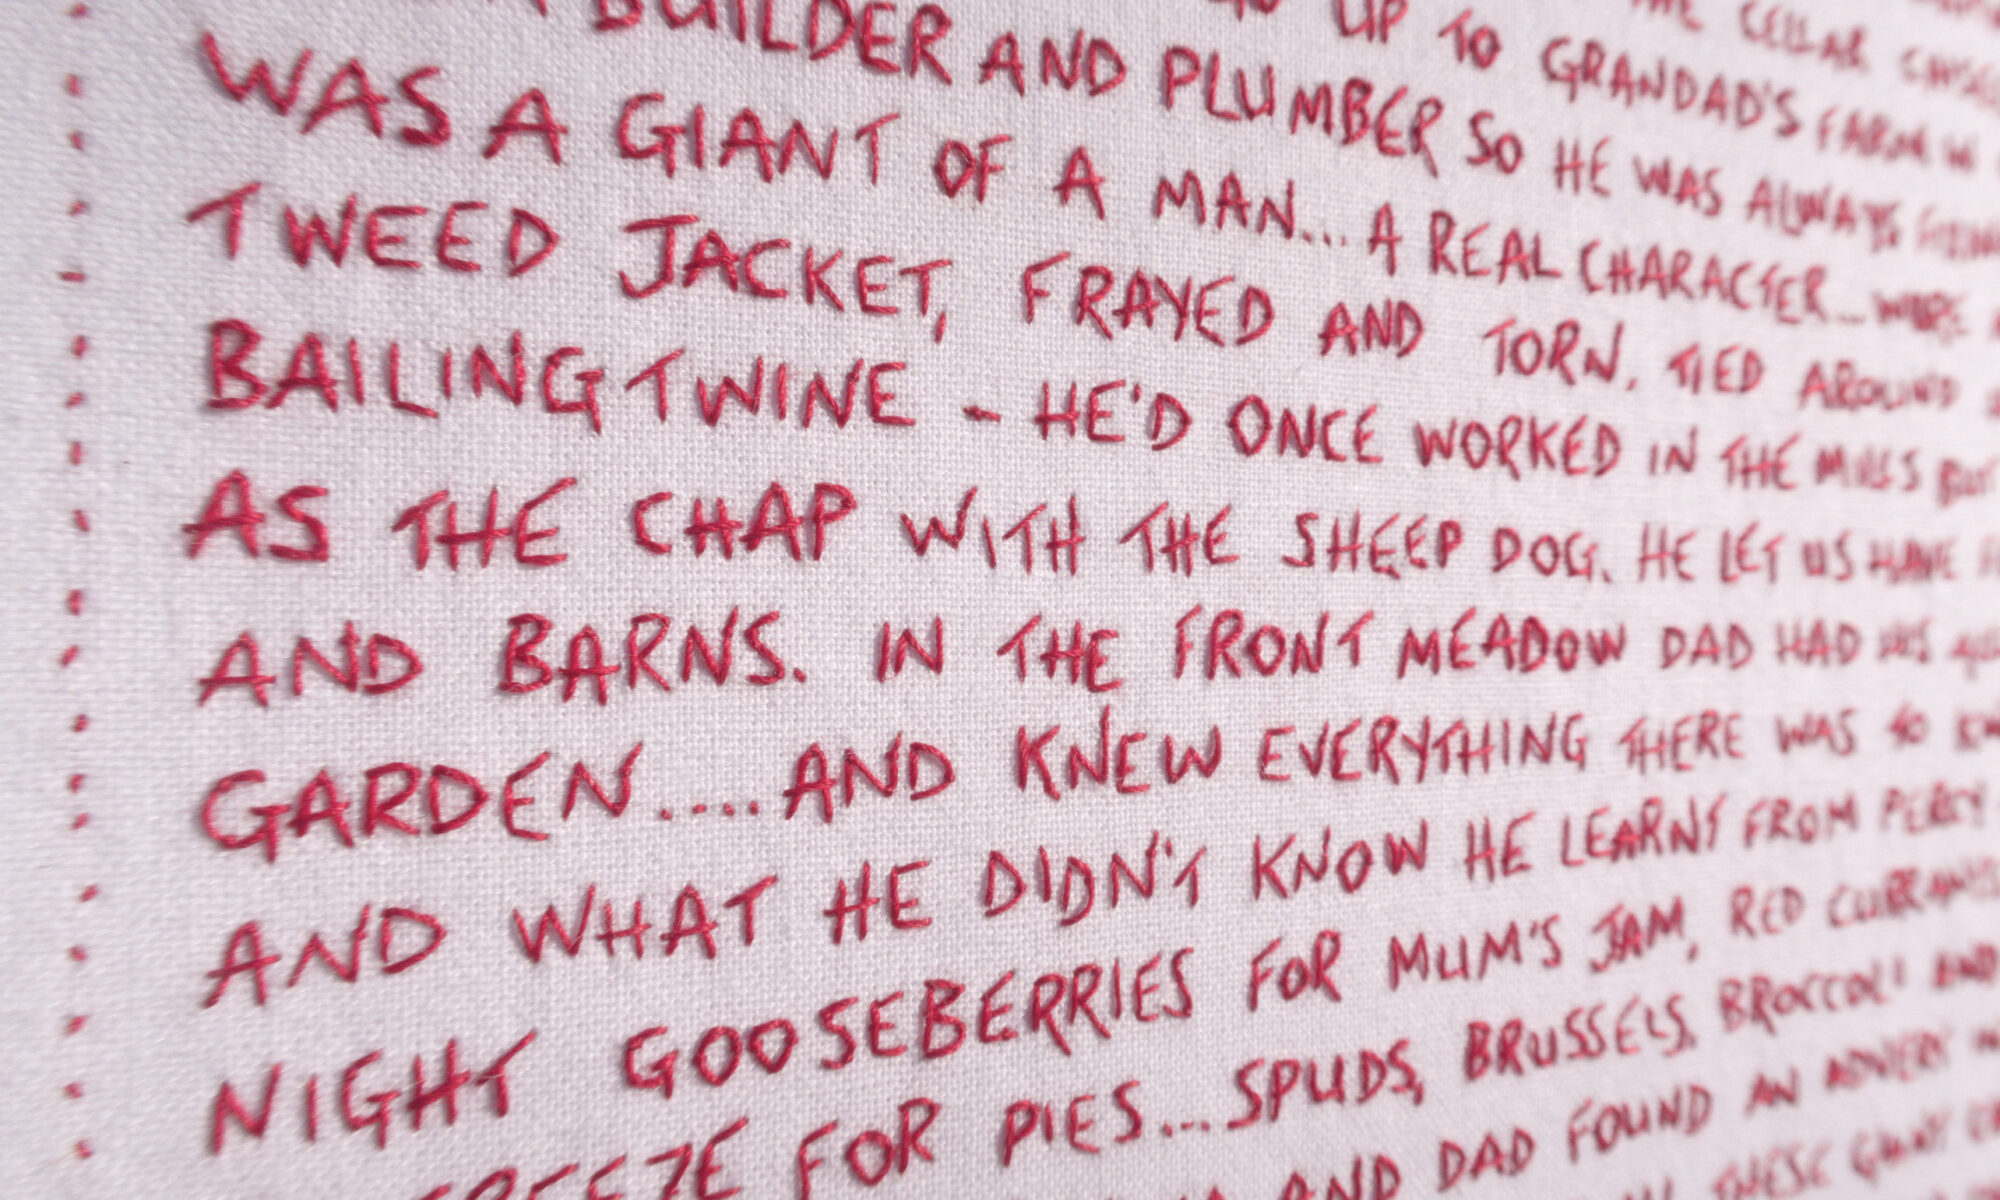 THE CELLAR
UP TO GRANDAD'S FARM IN
BUILDER AND PLUMBER SO HE WAS ALWAYS
WAS A GIANT OF A MAN... A REAL CHARACTER... WORE
TWEED JACKET, FRAYED AND TORN, TIED AROUND
BAILING TWINE - HE'D ONCE WORKED IN THE MILLS BUT
AS THE CHAP WITH THE SHEEP DOG. HE LET US HAVE
AND BARNS. IN THE FRONT MEADOW DAD HAD HIS
GARDEN....AND KNEW EVERYTHING THERE WAS TO
AND WHAT HE DIDN'T KNOW HE LEARNT FROM PERCY
NIGHT GOOSEBERRIES FOR MUM'S JAM, RED CURRANTS
FREEZE FOR PIES...SPUDS, BRUSSELS, BROCCOLI AND
AND DAD FOUND AN ADVERT IN
THESE GIANT